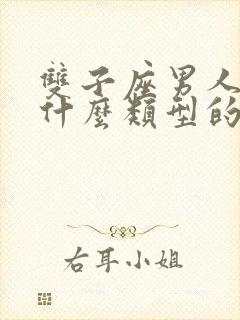 雙子座男人
什麼類型的
右耳小姐